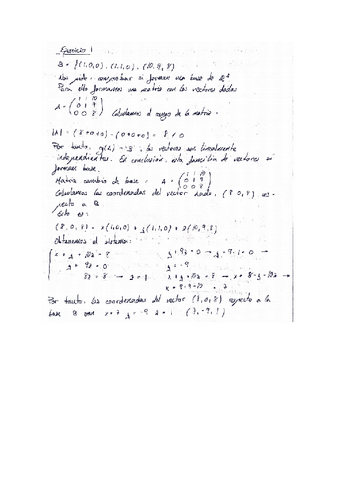 Ejercicio 1
B = {(1,0,0), (1,1,0), (10,9,8)
Nos piden comprobar si forman una base de
Para ello formamos una matriz con los vectores dados
A = (1 1 10
0 1 9 Calculamos el rango de la matriz.
0 0 8)
|A| = (8+0+0) - (0+0+0) = 8 ≠ 0
Por tanto, los vectores son linealmente
independientes. En conclusión, esta familia de vectores sí
forman base.
Matriz cambio de base = A = (1 1 10
0 1 9
0 0 8)
Calculamos las coordenadas del vector (8, 0, 8) res-
pecto a B.
Esto es:
(8, 0, 8) = x(1,0,0) + y(1,1,0) + z(10,9,8)
Obtenemos el sistema:
x + y + 10z = 8 y + 9z = 0 → y + 9·1 = 0 →
y + 9z = 0 y = -9
8z = 8 → z = 1 x + y + 10z = 8 → x = 8 - y - 10z →
x = 8+9-10 = 7
Por tanto, las coordenadas del vector (8,0,8) respecto a la
base B son x = 7 y = -9 z = 1